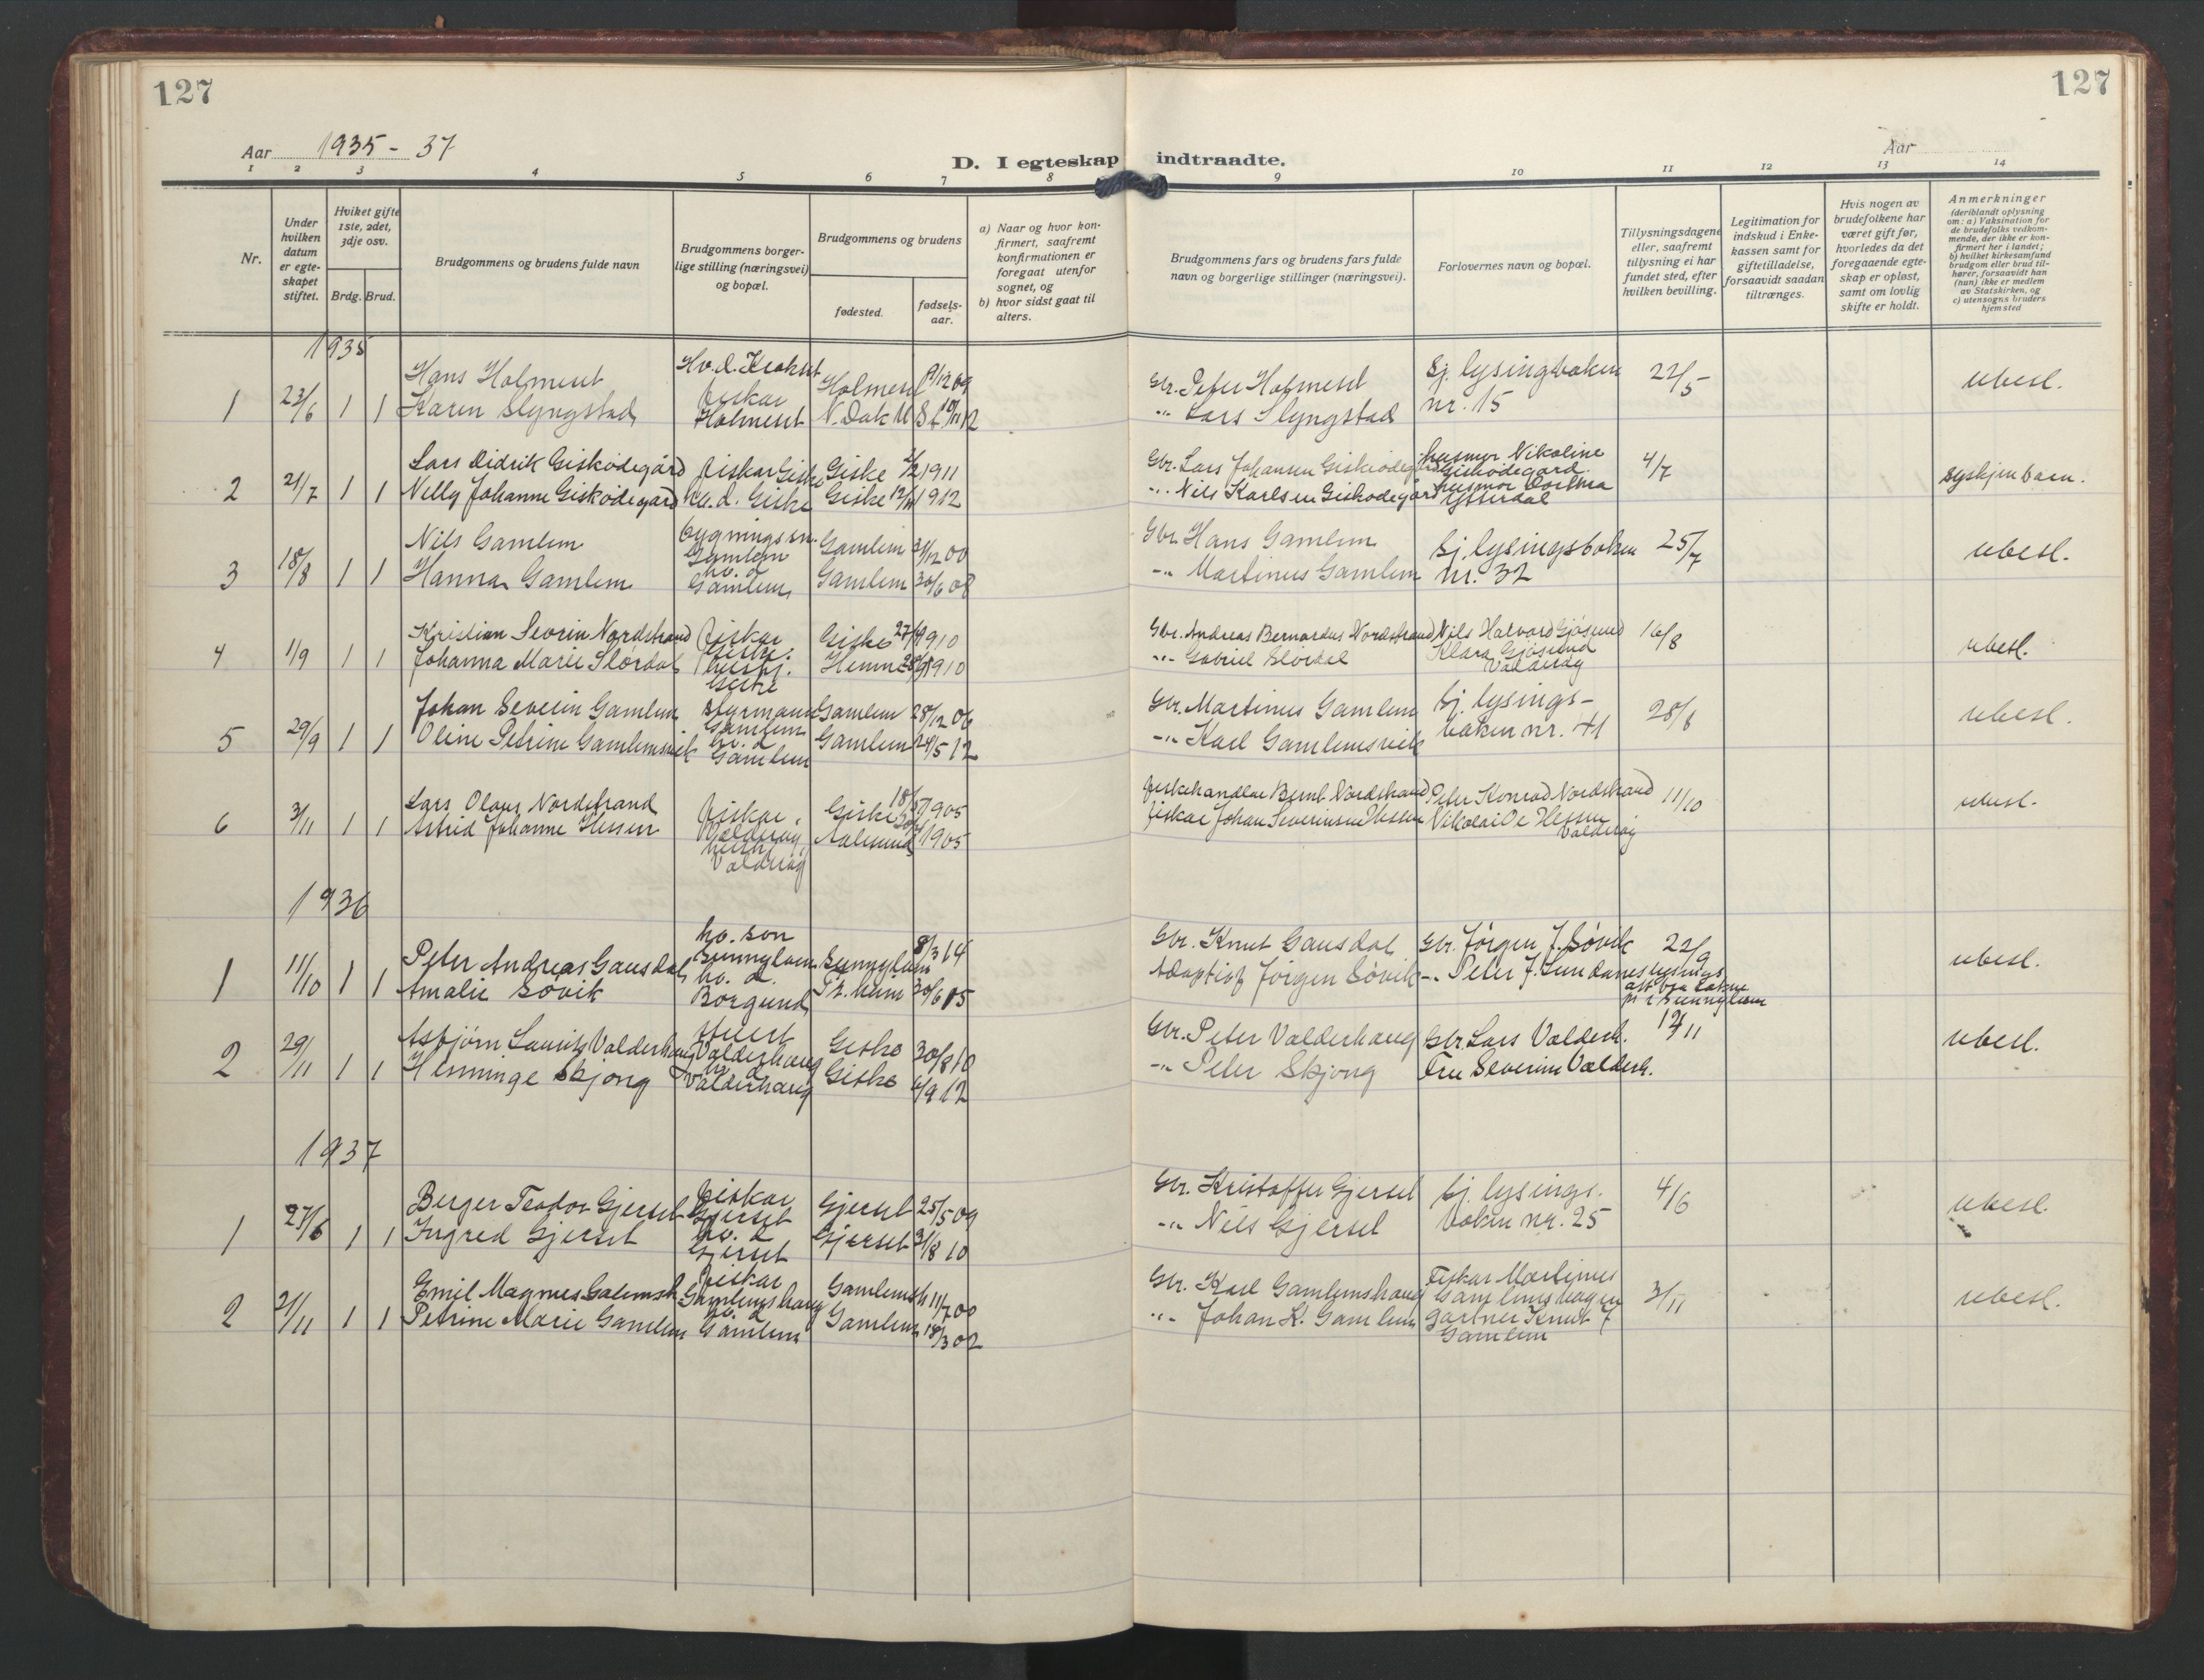 127
127
Aar 1935 - 37
D. I egteskap indtraadte.
Aar
1 2 3 4 5 6 7 8 9 10 11 12 13 14
Nr.
Under hvilken datum er egte-skapet stiftet.
Hviket gifte 1ste, 2det, 3dje osv.
Brdg. Brud.
Brudgommens og brudens fulde navn
Brudgommens borger-lige stilling (næringsvei) og bopæl.
Brudgommens og brudens
fødested.
fødsels-aar.
a) Naar og hvor kon-firmert, saafremt konfirmationen er foregaat utenfor sognet, og
b) hvor sidst gaat til alters.
Brudgommens fars og brudens fars fulde navn og borgerlige stillinger (næringsvei).
Forlovernes navn og bopæl.
Tillysningsdagene eller, saafremt tillysning ei har fundet sted, efter hvilken bevilling.
Legitimation for indskud i Enke-kassen samt for giftetilladelse, forsaavidt saadan tiltrænges.
Hvis nogen av brudefolkene har været gift før, hvorledes da det foregaaende egte-skap er opløst, samt om lovlig skifte er holdt.
Anmerkninger (deriblandt oplysning om: a) Vaksination for de brudefolks vedkom-mende, der ikke er kon-firmert her i landet; b) hvilket kirkesamfund brudgom eller brud til-hører, forsaavidt han (hun) ikke er medlem av Statskirken, og c) utensogns bruders hjemsted
1935
1 23/6 1 1
Hans Holmeset
Karen Slyngstad
Hv.d.
fiskar
Holmeset
Holmeset 12 09
N. Dak U S 12
Gbr. Peter Holmeset
-"- Lars Slyngstad
Sj. lysingboken
nr. 15
22/5
ubesl.
2 21/7 1 1
Lars Didrik Giskødegård
Nelly Johanne Giskødegård
fiskar Giske
hv.d. Giske
Giske 1911
Giske 1912
Gbr. Lars Johansen Giskeødegård
-"- Nils Karlsen Giskødegård
husmor Nikoline
Giskødegård
husmor Dorthea
Ytterdal
4/7
syskjenbarn.
3 18/8 1 1
Nils Gamlem
Hanna Gamlem
bygningssn.
Gamlem
hv. d
Gamlem
Gamlem 31/12 00
Gamlem 30/6 08
Gbr. Hans Gamlem
-"- Martinus Gamlem
Sj. lysingsboken
nr. 32
25/7
ubesl.
4 1/9 1 1
Kristian Sevrin Nordstrand
Johanna Marie Slørdal
fiskar
Giske.
hushj.
Giske
Giske 1910
Hemne 1910
Gbr. Andreas Bernardus Nordstrand
-"- Gabriel Slørdal
Nils Halvard Gjøsund
Klara Gjøsund
Valderøy
16/8
ubesl.
5 29/9 1 1
Johan Severin Gamlem
Oline Petrine Gamlemsvik
styrmann
Gamlem
hv. d
Gamlem
Gamlem 28/12 06
Gamlem 24/5 12
Gbr. Martinus Gamlem
-"- Karl Gamlemsvik
Sj. lysings-
boken nr. 41
28/8
ubesl.
6 3/11 1 1
Lars Olaus Nordstrand
Astrid Johanne Hessen
fiskar,
Valderøy,
hushj.
Valderøy
Giske 18/5 1905
Aalesund 1905
Fiskehandlar Bernt Nordstrand
fiskar Johan Severinsen Hessen
Peter Konrad Nordstrand
Nikolai O. Hessen
Valderøy
11/10
ubesl.
1936
1 11/10 1 1
Peter Andreas Gausdal
Amalie Søvik
hv. son
Sunnylven
hv. d.
Borgund
Sunnylven 8/3 14
Tr.heim 30/6 05
Gbr. Knut Gausdal
Adoptivf Jørgen Søvik
Gbr. Jørgen J. Søvik
-"- Peter J. Lundanes
22/9
lysnings
att fra sokne
pr i Sunnylven
ubesl.
2 29/11 1 1
Asbjørn Laurits Valderhaug
Hemminge Skjong
Valderhaug
hv. d
Valderhaug
Giske 30/8 10
Giske 6/9 12
Gbr. Peter Valderhaug
-"- Peter Skjong
Gbr. Lars Valderh.
Fru Severine Valderh.
12/11
ubesl.
1937
1 27/6 1 1
Berger Teodor Gjerset
Ingrid Gjerset
fiskar
Gjerset
hv. d
Gjerset
Gjerset 25/5 09
Gjerset 31/8 10
Gbr. Kristoffer Gjerset
-"- Nils Gjerset
Sj. lysings.
boken nr. 25
4/6
ubesl.
2 21/11 1 1
Emil Magnus Galemsh
Petrine Marie Gamlem
fiskar
Gamlemshaug
hv. d
Gamlem
Gamlemsh 11/7 00
Gamlem 18/3 02
Gbr. Karl Gamlemshaug
"- Johan K. Gamlem
Fiskar Martinus
Gamlemshagen
gartner Knut
Gamlem
3/11
ubesl.